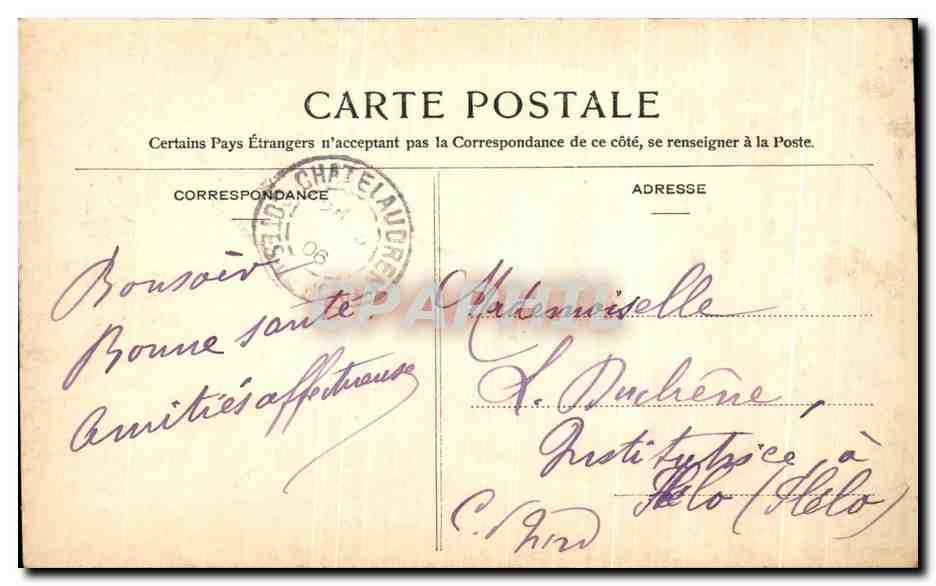 CARTE POSTALE
Certains Pays Étrangers n'acceptant pas la Correspondance de ce côté, se renseigner à la Poste.
CORRESPONDANCE
CHATELAUDREN
06
Bonsoir
Bonne santé
Amitiés affectueuse
ADRESSE
Mademoiselle
L. Duchêne,
Institutrice, à
Hélo (Hélo)
C. d Nord
CPAPHIL